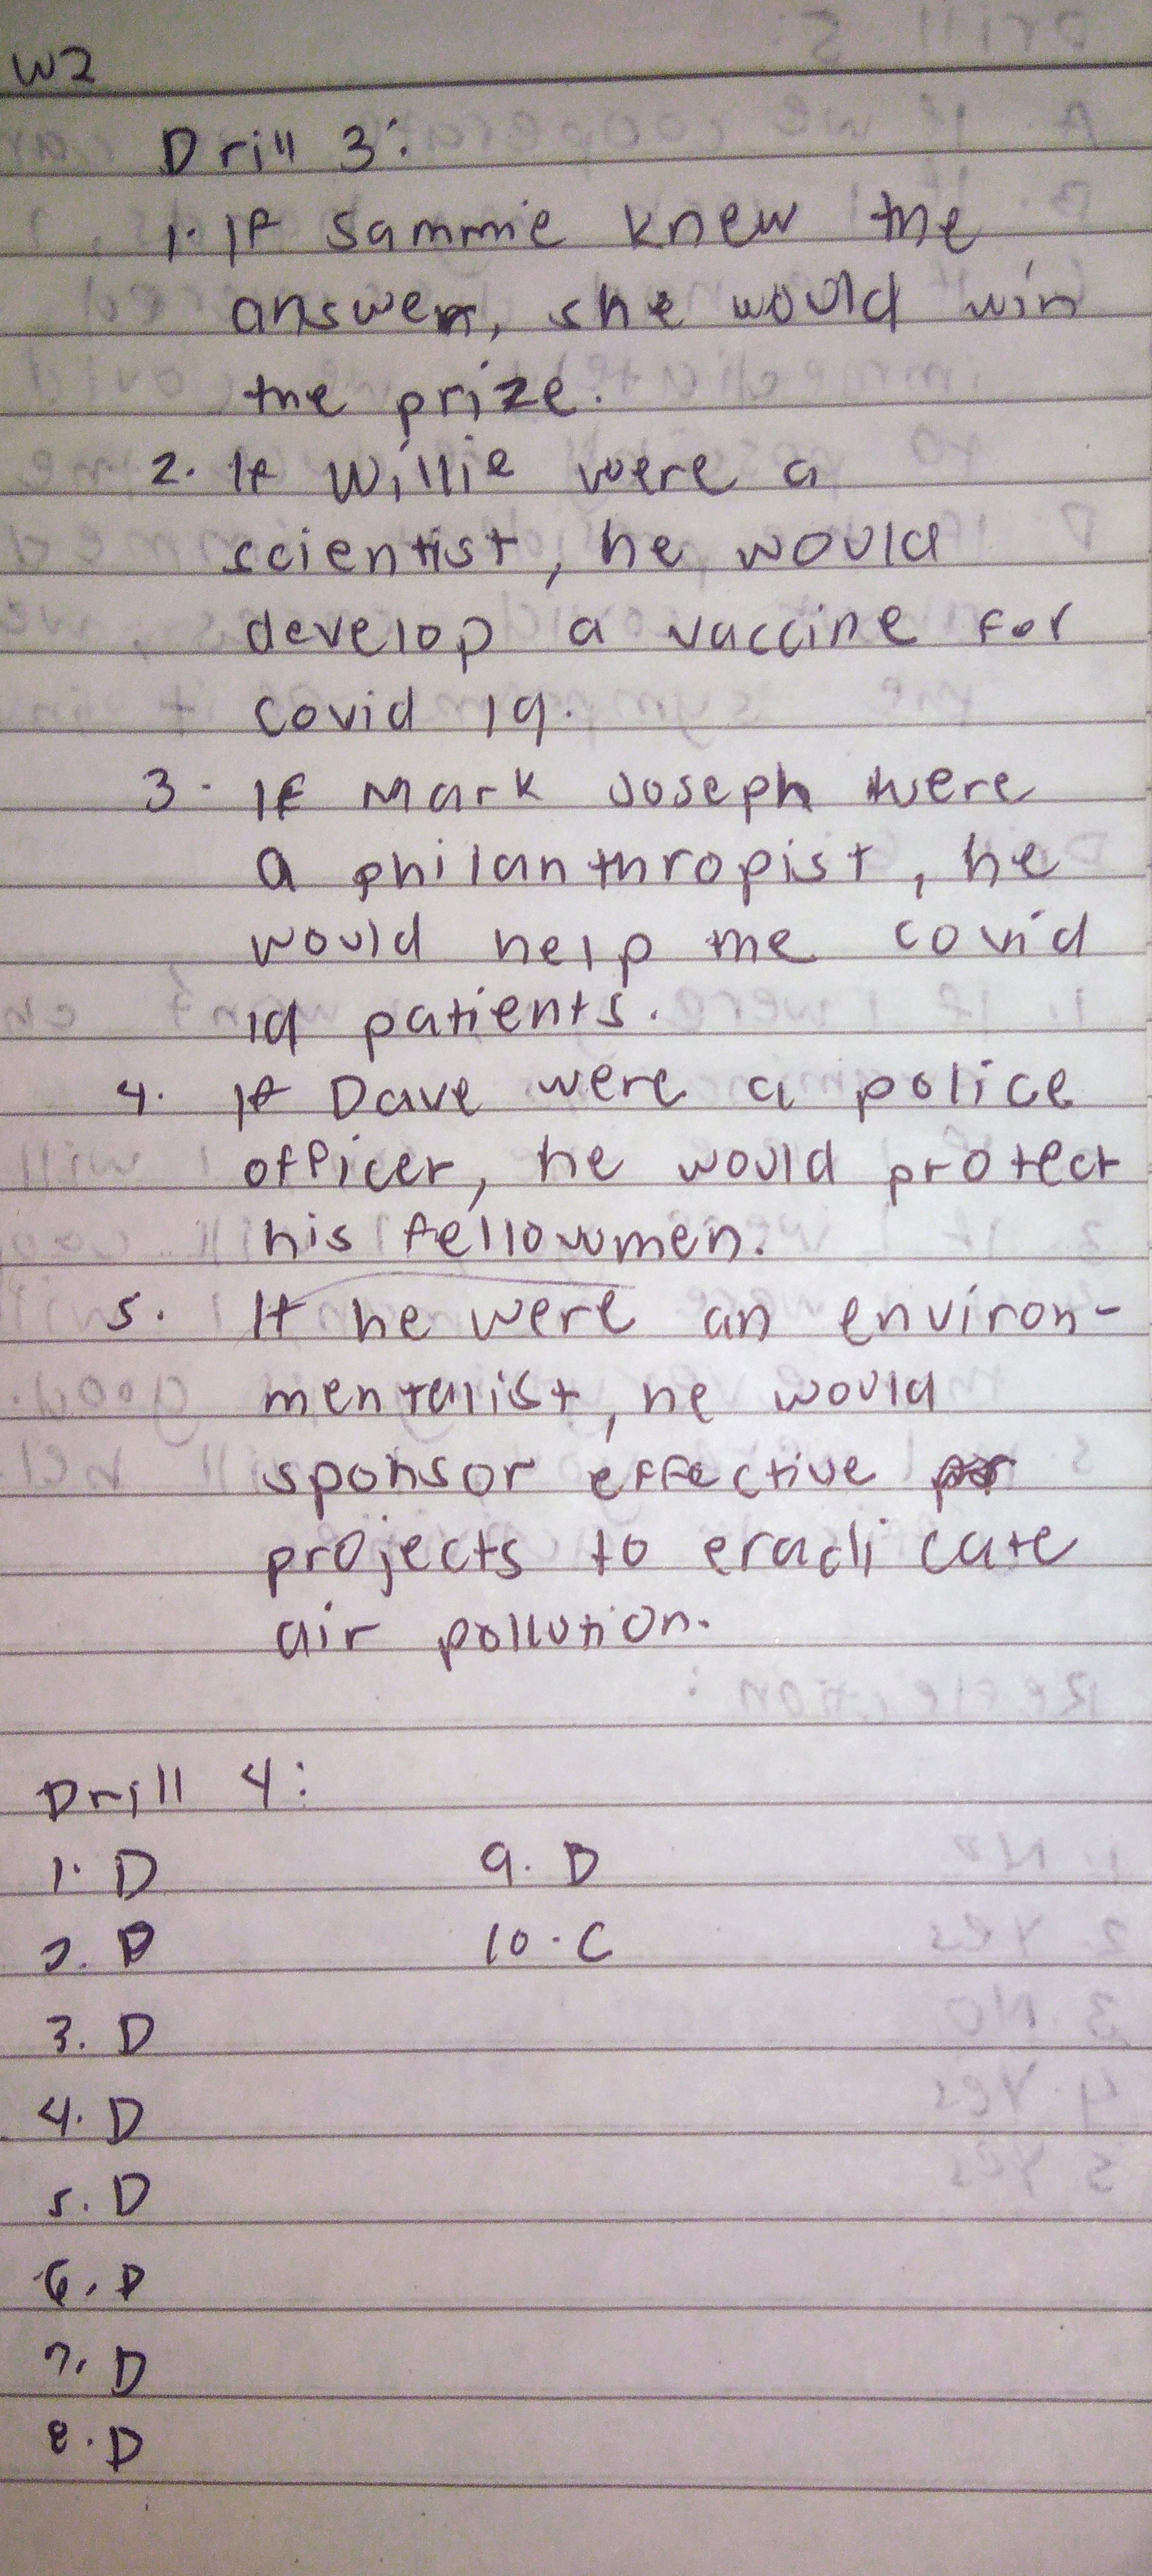 W2
Drill 3:
1. If Sammie knew the
answer, she would win
the prize.
2. If Willie were a
scientist, he would
develop a vaccine for
covid 19.
3. If Mark Joseph were
a philanthropist, he
would help the covid
19 patients.
4. If Dave were a police
officer, he would protect
his fellowmen.
5. If he were an environ-
mentalist, he would
sponsor effective
projects to eradicate
air pollution.
Drill 4:
1. D
2. D
3. D
4. D
5. D
6. D
7. D
8. D
9. D
10. C